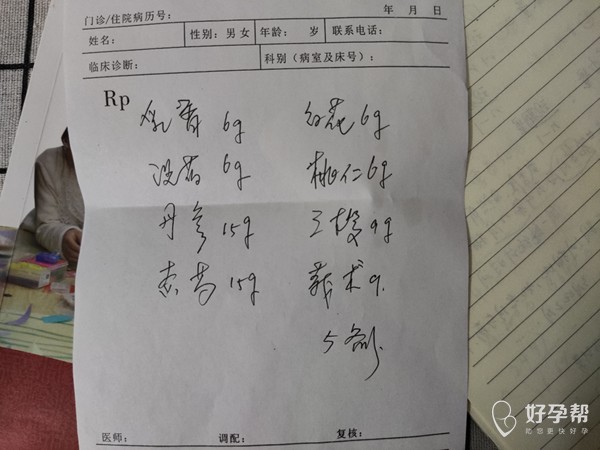 门诊/住院病历号: 年 月 日
姓名: 性别: 男 女 年龄: 岁 联系电话:
临床诊断: 科别(病室及床号):
Rp
乳香 6g 红花 6g
没药 6g 桃仁 6g
丹参 15g 三棱 9g
赤芍 15g 莪术 9.
5剂.
医师: 调配: 复核:
好孕帮
助您更快好孕